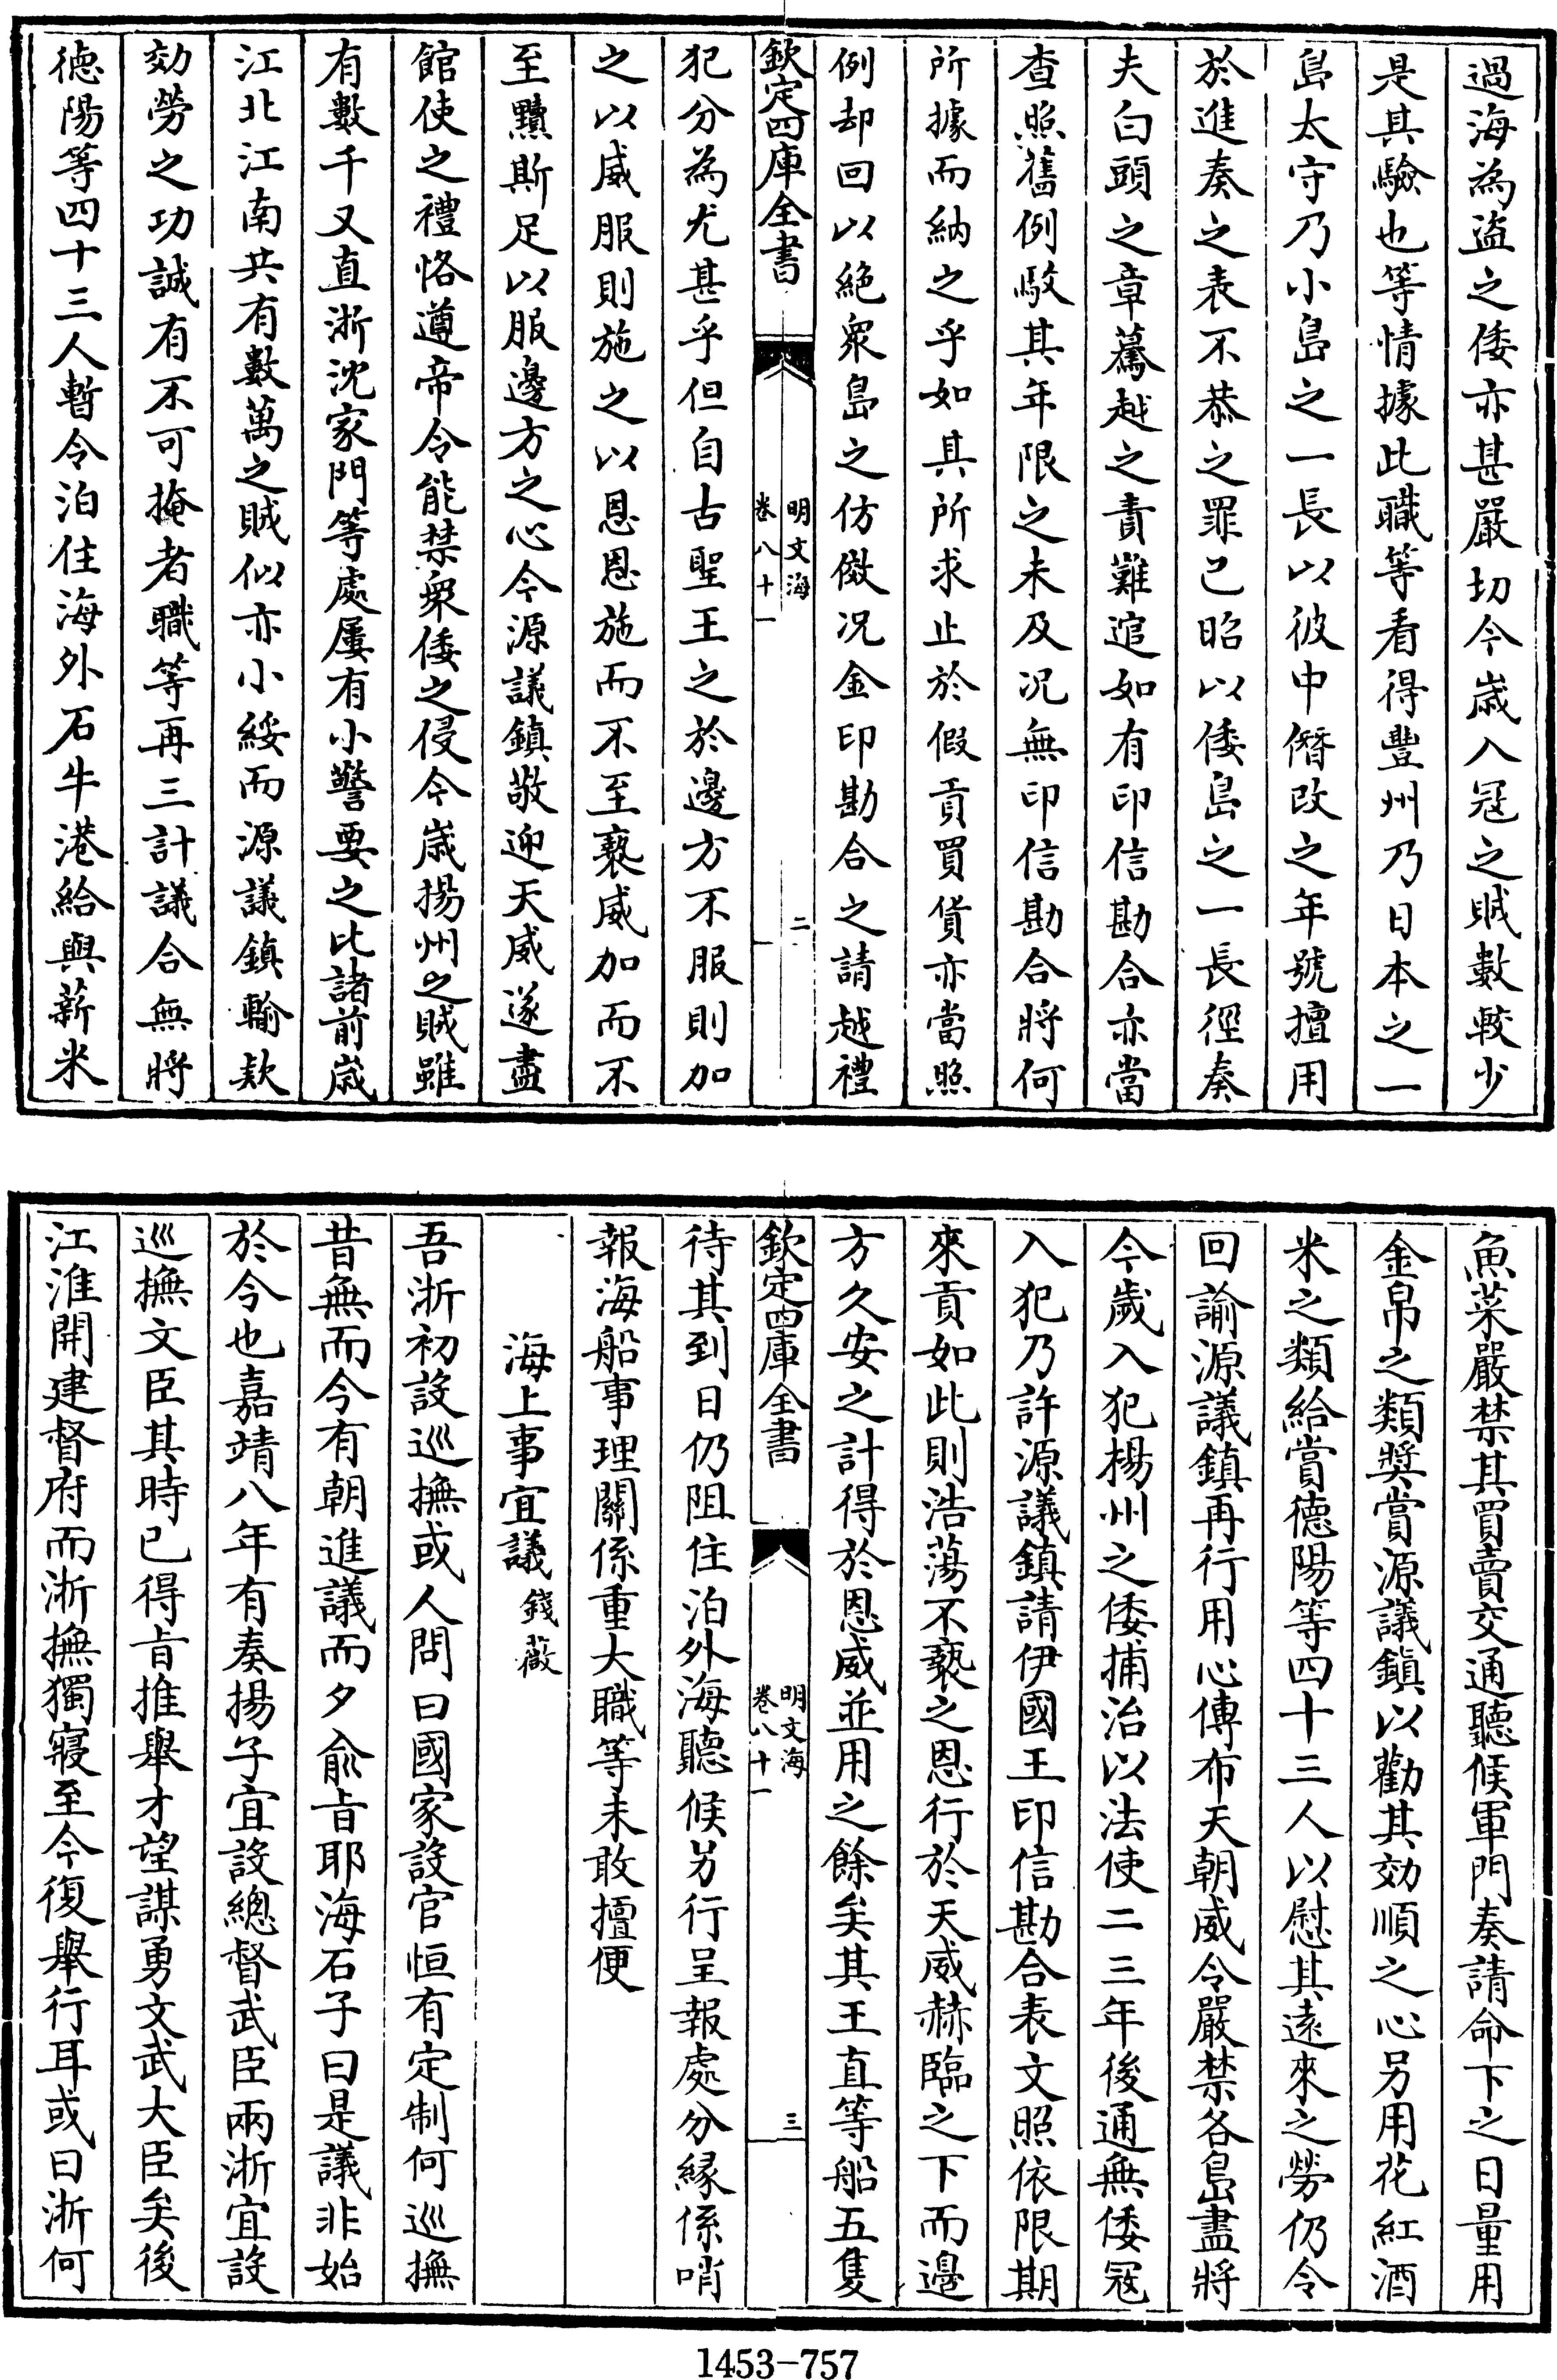 過海為盗之倭亦甚嚴切今嵗入冦之賊數較少
是其驗也等情據此職等看得豐州乃日本之一
島太守乃小島之一長以彼中僭改之年號擅用
於進奏之表不恭之罪已昭以倭島之一長徑奏
夫白頭之章驀越之責難逭如有印信勘合亦當
查照舊例駁其年限之未及况無印信勘合將何
所據而納之乎如其所求止於假貢買貨亦當照
例却回以絶衆島之仿傚况金印勘合之請越禮
欽定四庫全書
明文海
卷八十一
二
犯分為尤甚乎但自古聖王之於邊方不服則加
之以威服則施之以恩恩施而不至褻威加而不
至黷斯足以服邊方之心今源議鎮敬迎天威遂盡
館使之禮恪遵帝令能禁衆倭之侵今嵗揚州之賊雖
有數千又直浙沈家門等處屢有小警要之比諸前嵗
江北江南共有數萬之賊似亦小綏而源議鎮輸欵
効勞之功誠有不可掩者職等再三計議合無將
徳陽等四十三人暫令泊住海外石牛港給與薪米
魚菜嚴禁其買賣交通聽候軍門奏請命下之日量用
金帛之類奬賞源議鎮以勸其効順之心另用花紅酒
米之類給賞德陽等四十三人以慰其逺來之勞仍令
回諭源議鎮再行用心傳布天朝威令嚴禁各島盡將
今歲入犯楊州之倭捕治以法使二三年後通無倭冦
入犯乃許源議鎮請伊國王印信勘合表文照依限期
來貢如此則浩蕩不褻之恩行於天威赫臨之下而邊
方久安之計得於恩威並用之餘矣其王直等船五隻
欽定四庫全書
明文海
卷八十一
三
待其到日仍阻住泊外海聽候另行呈報處分縁係哨
報海船事理關係重大職等未敢擅便
海上事宜議 錢薇
吾浙初設巡撫或人問曰國家設官恒有定制何巡撫
昔無而今有朝進議而夕俞㫖耶海石子曰是議非始
於今也嘉靖八年有奏揚子宜設總督武臣兩浙宜設
巡撫文臣其時已得㫖推舉才望謀勇文武大臣矣後
江淮開建督府而浙撫獨寢至今復舉行耳或曰浙何
1453-757